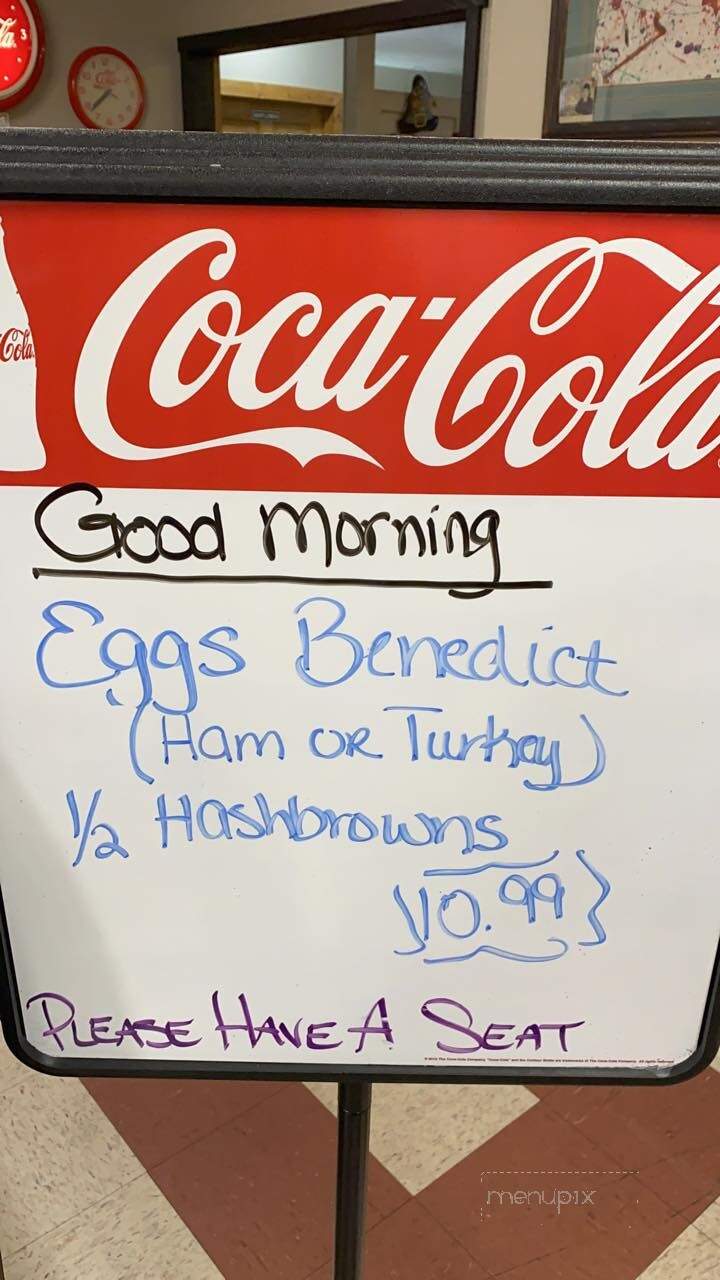 Coca-Cola
Cola
Good Morning
Eggs Benedict
(Ham or Turkey)
1/2 Hashbrowns
10.99
PLEASE HAVE A SEAT
menupix